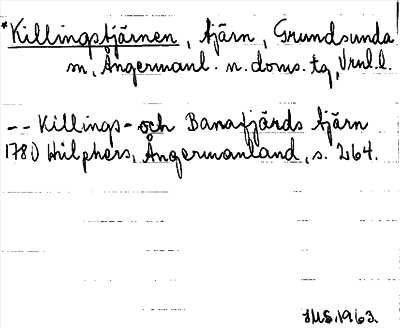 *Killingstjärnen, tjärn, Grundsunda
sn, Ångermanl. n. doms. tg, Vrnl. l.
-- Killings- och Banafjärds tjärn
1780 Hülphers, Ångermanland, s. 264.
JMS.1963.